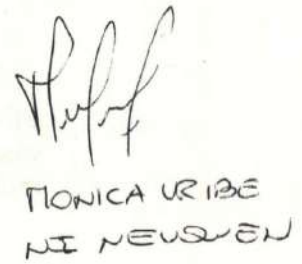 MONICA URIBE
NI NEUQUEN